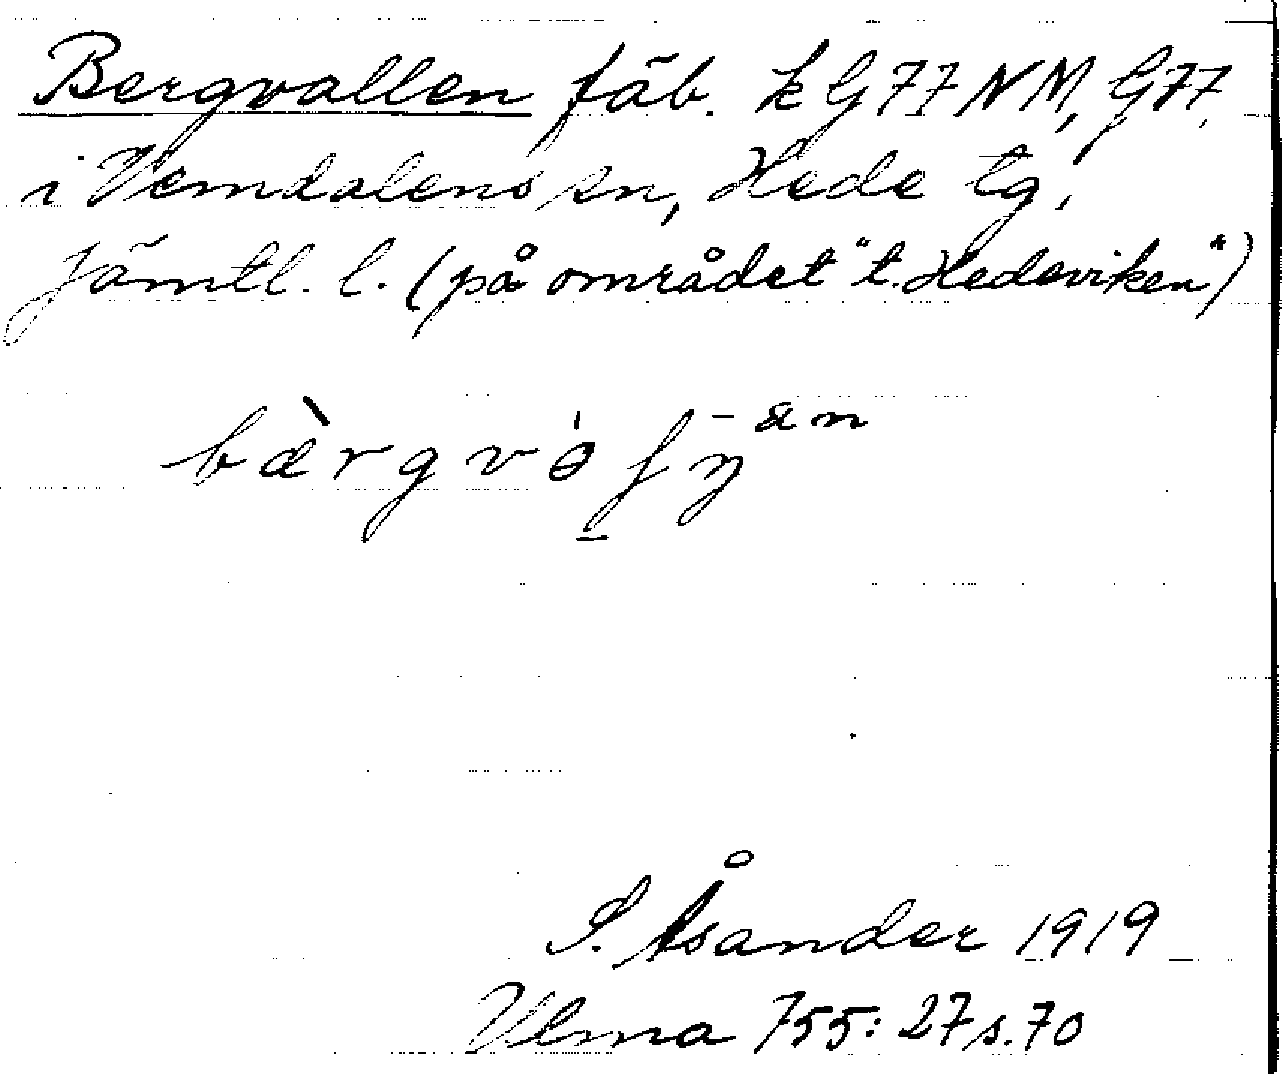 Bergvallen fäb. k G77NM, G77
i Vemdalens sn, Hede tg,
Jämtl. l. (på området "t. Hedeviken")
bærgv
S. Åsander 1919
Ulma 755:27 s. 70